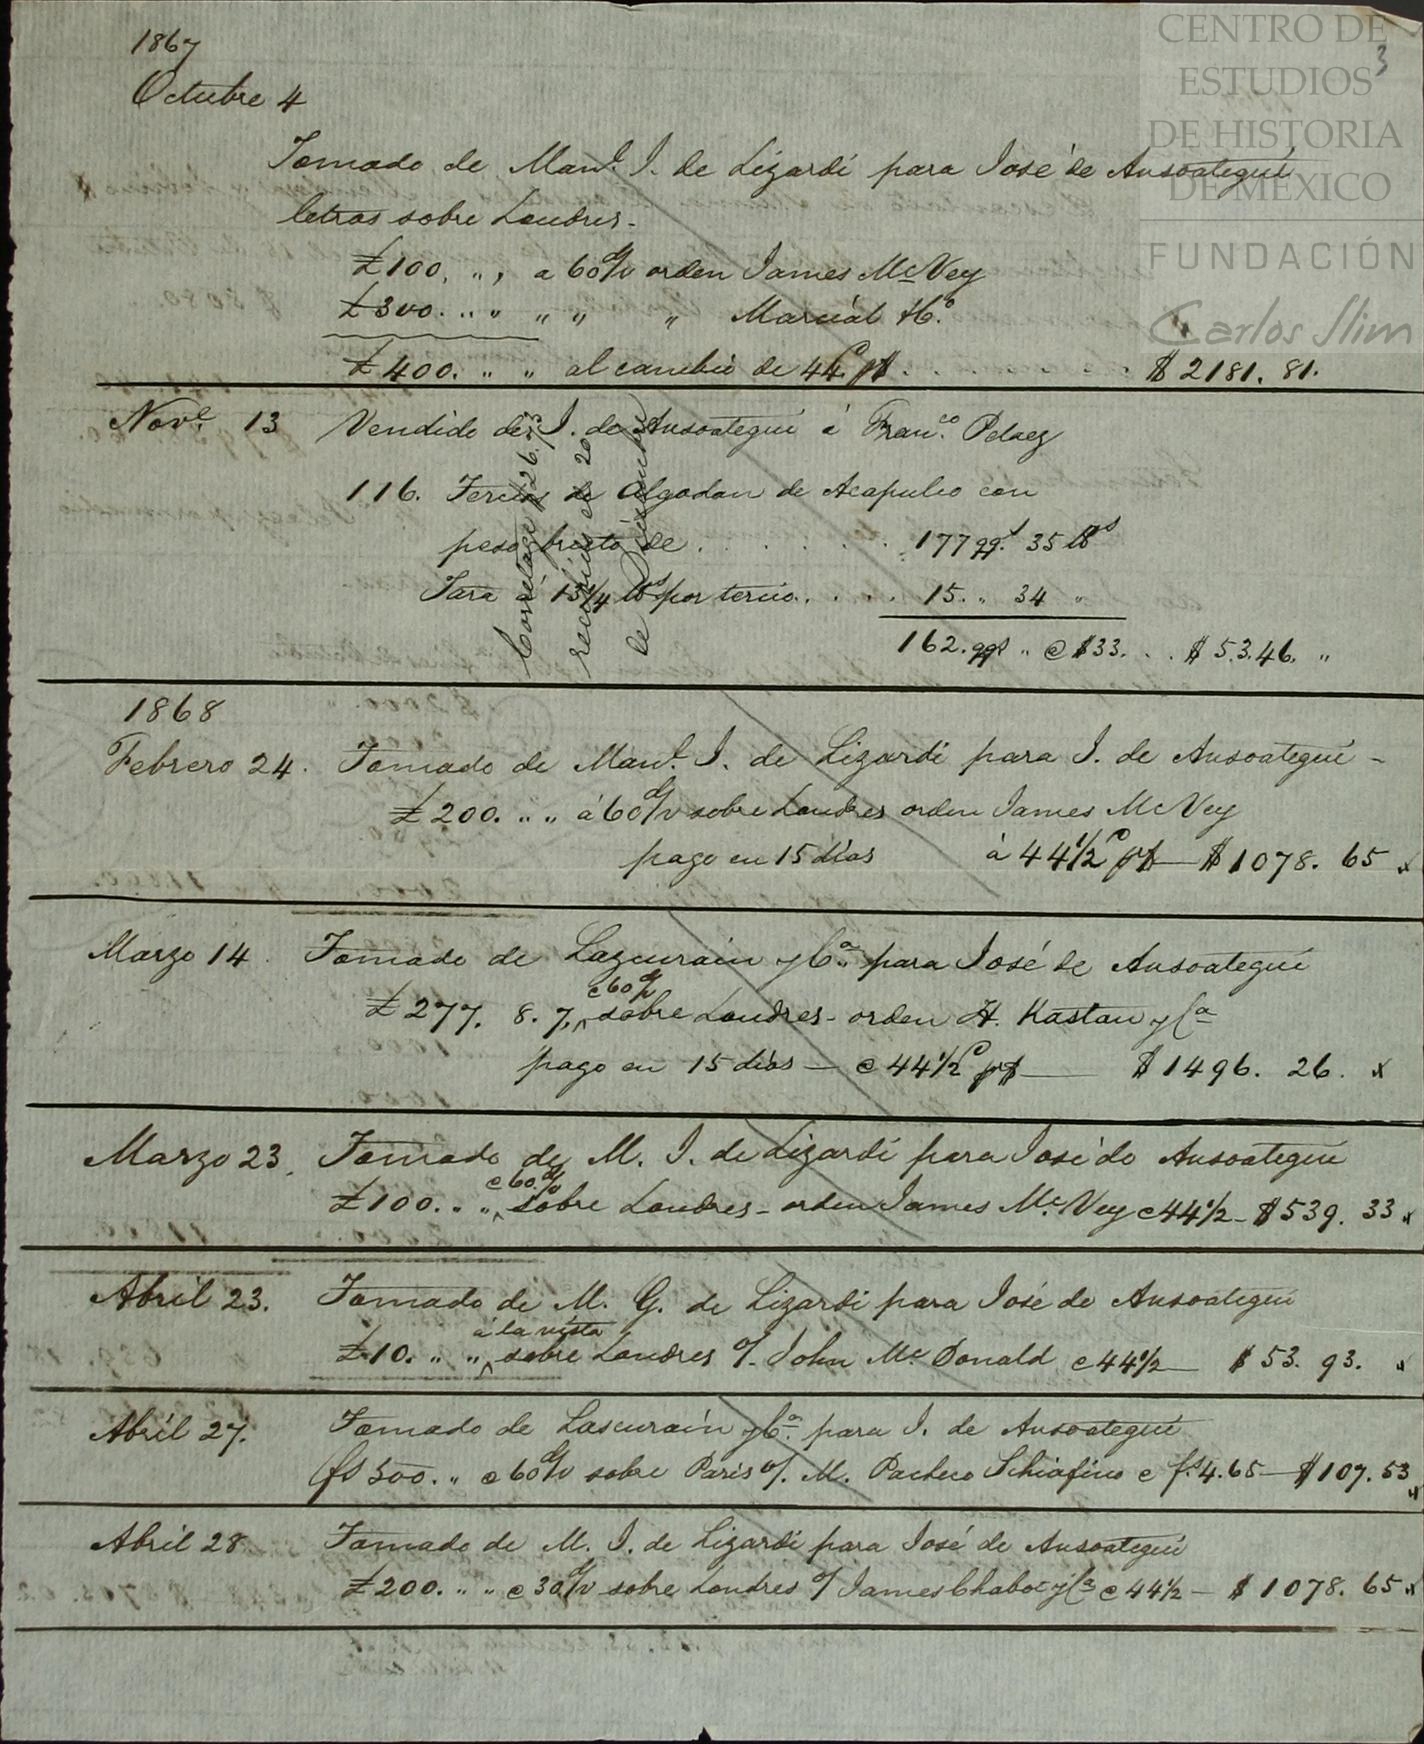 CENTRO DE
ESTUDIOS
DE HISTORIA
DE MÉXICO
FUNDACIÓN
Carlos Slim
3
1867
Octubre 4
Tomado de Manl. J. de Lizardi para José de Ansoategui
letras sobre Londres-
£100. ,, ,, a 60 d/v orden James McVey
£300. ,, ,, ,, ,, ,, Marcial Ho.
£400. ,, ,, al cambio de 44 p$ . . . . . $2181. 81.
Nove. 13 Vendido de J. de Ansoategui á Franco. Pelaez
116. Tercios de algodon de Acapulco con
peso bruto de . . . . . . 177 qqs. 35 lbs
Tara a 13 1/4 lbs por tercio. . . . 15. ,, 34 ,,
162. qqs ,, @ $33. . . $5.346. ,,
Corretage $26.73
recibidos el 20
de Diciembre
1868
Febrero 24. Tomado de Manl. J. de Lizardi para J. de Ansoategui -
£200. ,, ,, á 60 d/v sobre Londres orden James McVey
pago en 15 dias á 44 1/2 p$ — $1078. 65 x
Marzo 14. Tomado de Lazcurain y Ca. para José de Ansoategui
@ 60 d/v
£277. 8. 7. sobre Londres- orden H. Kastan y Ca
pago en 15 dias — @ 44 1/2 p$ — $1496. 26. x
Marzo 23. Tomado de M. J. de Lizardi para José de Ansoategui
@ 60 d/v
£100. ,, ,, sobre Londres- orden James Mc. Vey @ 44 1/2 - $539. 33 x
Abril 23. Tomado de M. G. de Lizardi para José de Ansoategui
á la vista
£10. ,, ,, sobre Londres o/- John Mc Donald @ 44 1/2 — $53. 93. x
Abril 27. Tomado de Lascurain y Ca. para J. de Ansoategui
fs 500. ,, @ 60 d/v sobre Paris o/. M. Pacheco Schiafino @ fs. 4.65 — $107. 53 x
Abril 28 Tomado de M. J. de Lizardi para José de Ansoategui
£200. ,, ,, @ 30 d/v sobre Londres o/ James Chabot y Ca @ 44 1/2 — $1078. 65 x